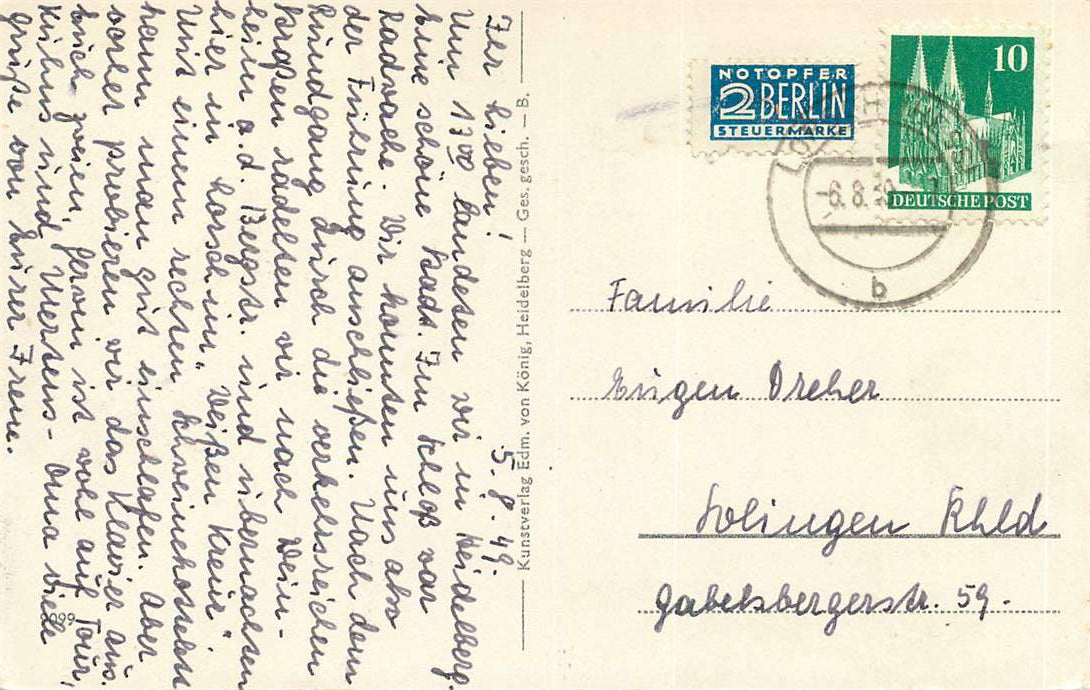 5.8.49.
Ihr Lieben!
Um 13⁰⁰ landeten wir in Heidelberg.
Eine schöne Stadt. Im Schloß war
Radwache. Wir konnten uns also
der Führung anschließen. Nach dem
Rundgang durch die verkehrsreichen
Straßen radelten wir nach Wein-
heim a.d. Bergstr. und übernachten
hier in Lorsch im „Weißen Kreuz“
Mit einem rechten
kann man gut einschlafen. Aber
vorher probieren wir das Klavier aus.
Euch zweien, ist wohl auf Tour,
Kühns und Mertens-Oma viele
Grüße von Eurer Irene.
099
Kunstverlag Edm. von König, Heidelberg — Ges. gesch. — B.
NOTOPFER
2 BERLIN
STEUERMARKE
10
DEUTSCHE POST
-6.8.
b
Familie
Eugen Dreher
Solingen Rhld
Gabelsbergerstr. 59.